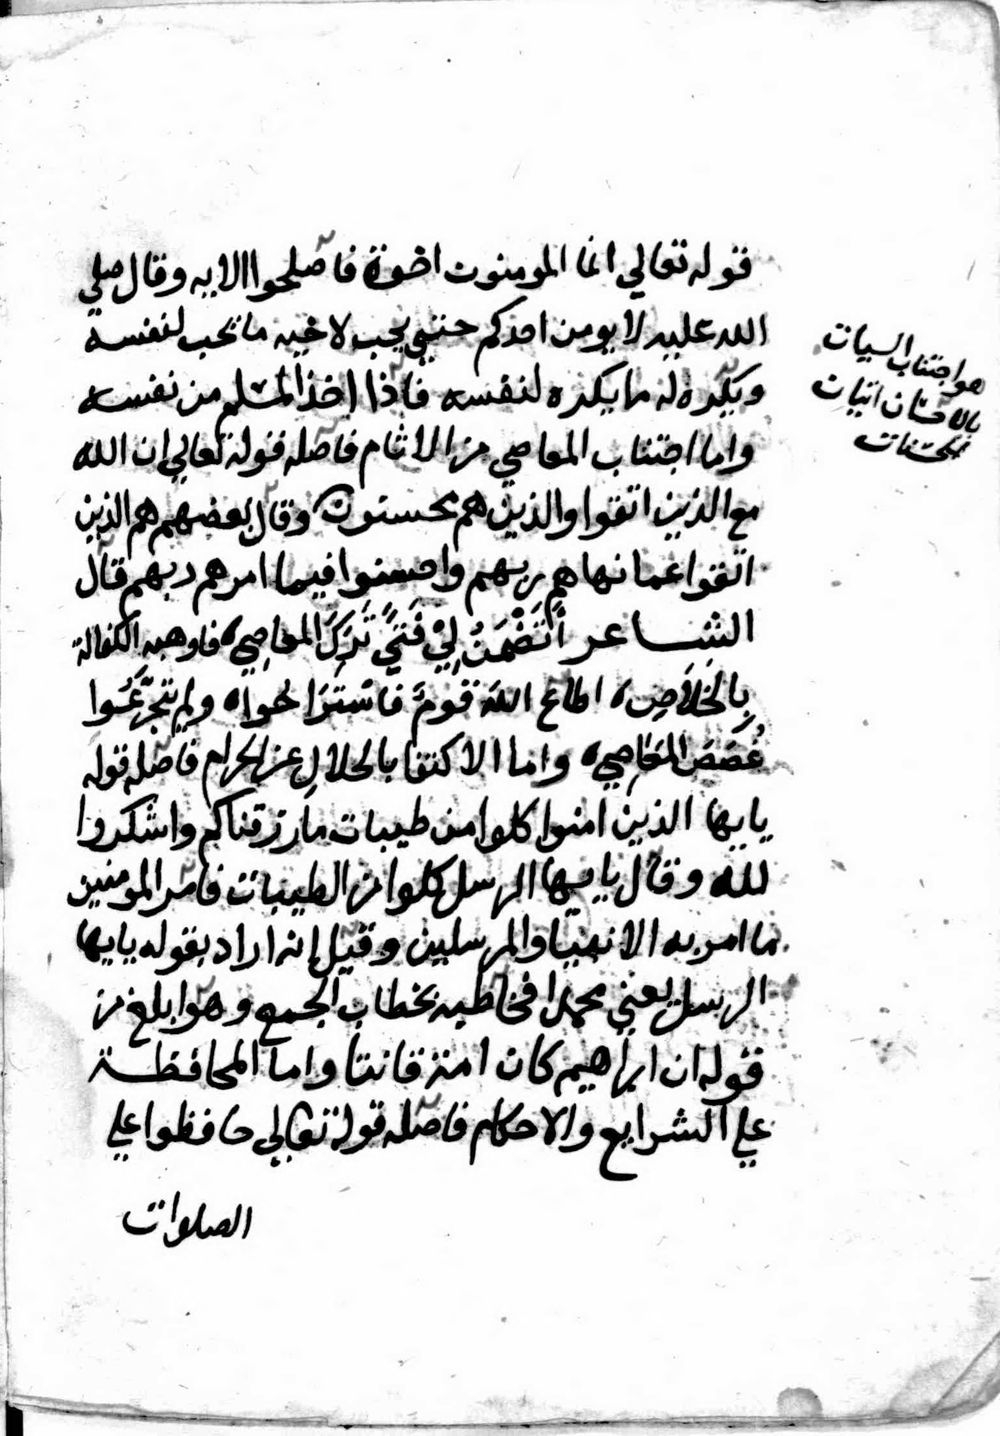 قوله تعالي انما المومنون اخوة فاصلحوا الايه وقال صلي
الله عليه لا يومن احدكم حتي يحب لاخيه ما يحب لنفسه
ويكره له ما يكره لنفسه فاذا اخذ المسلم من نفسه
واما اجتناب المعاصي من الاثام فاصله قوله تعالي ان الله
مع الذين اتقوا والذين هم محسنون وقال بعضهم هم الذين
اتقوا عما نهاهم ربهم واحسنوا فيما امرهم ربهم قال
الشاعر أتضمن لي فتىً ترك المعاصي ه فاوهبه الكفالة
بالخلاص ه اطاع الله قومٌ فاستراحوا ه ولم يتجرّعوا
غُصَصَ المعاصي ه واما الاكتفا بالحلال عن الحرام فاصله قوله
يايها الذين امنوا كلوا من طيبات ما رزقناكم واشكروا
لله وقال يايها الرسل كلوا من الطيبات فامر المومنين
ما امر به الانبيا والمرسلين وقيل إنه اراد بقوله يايها
الرسل يعني محمدا فخاطبه بخطاب الجمع وهو ابلغ من
قوله ان ابراهيم كان امة قانتا واما المحافظة
علي الشرايع والاحكام فاصله قوله تعالي حافظوا علي
الصلوات
هو اجتناب السيات
بالاحسان اتيان